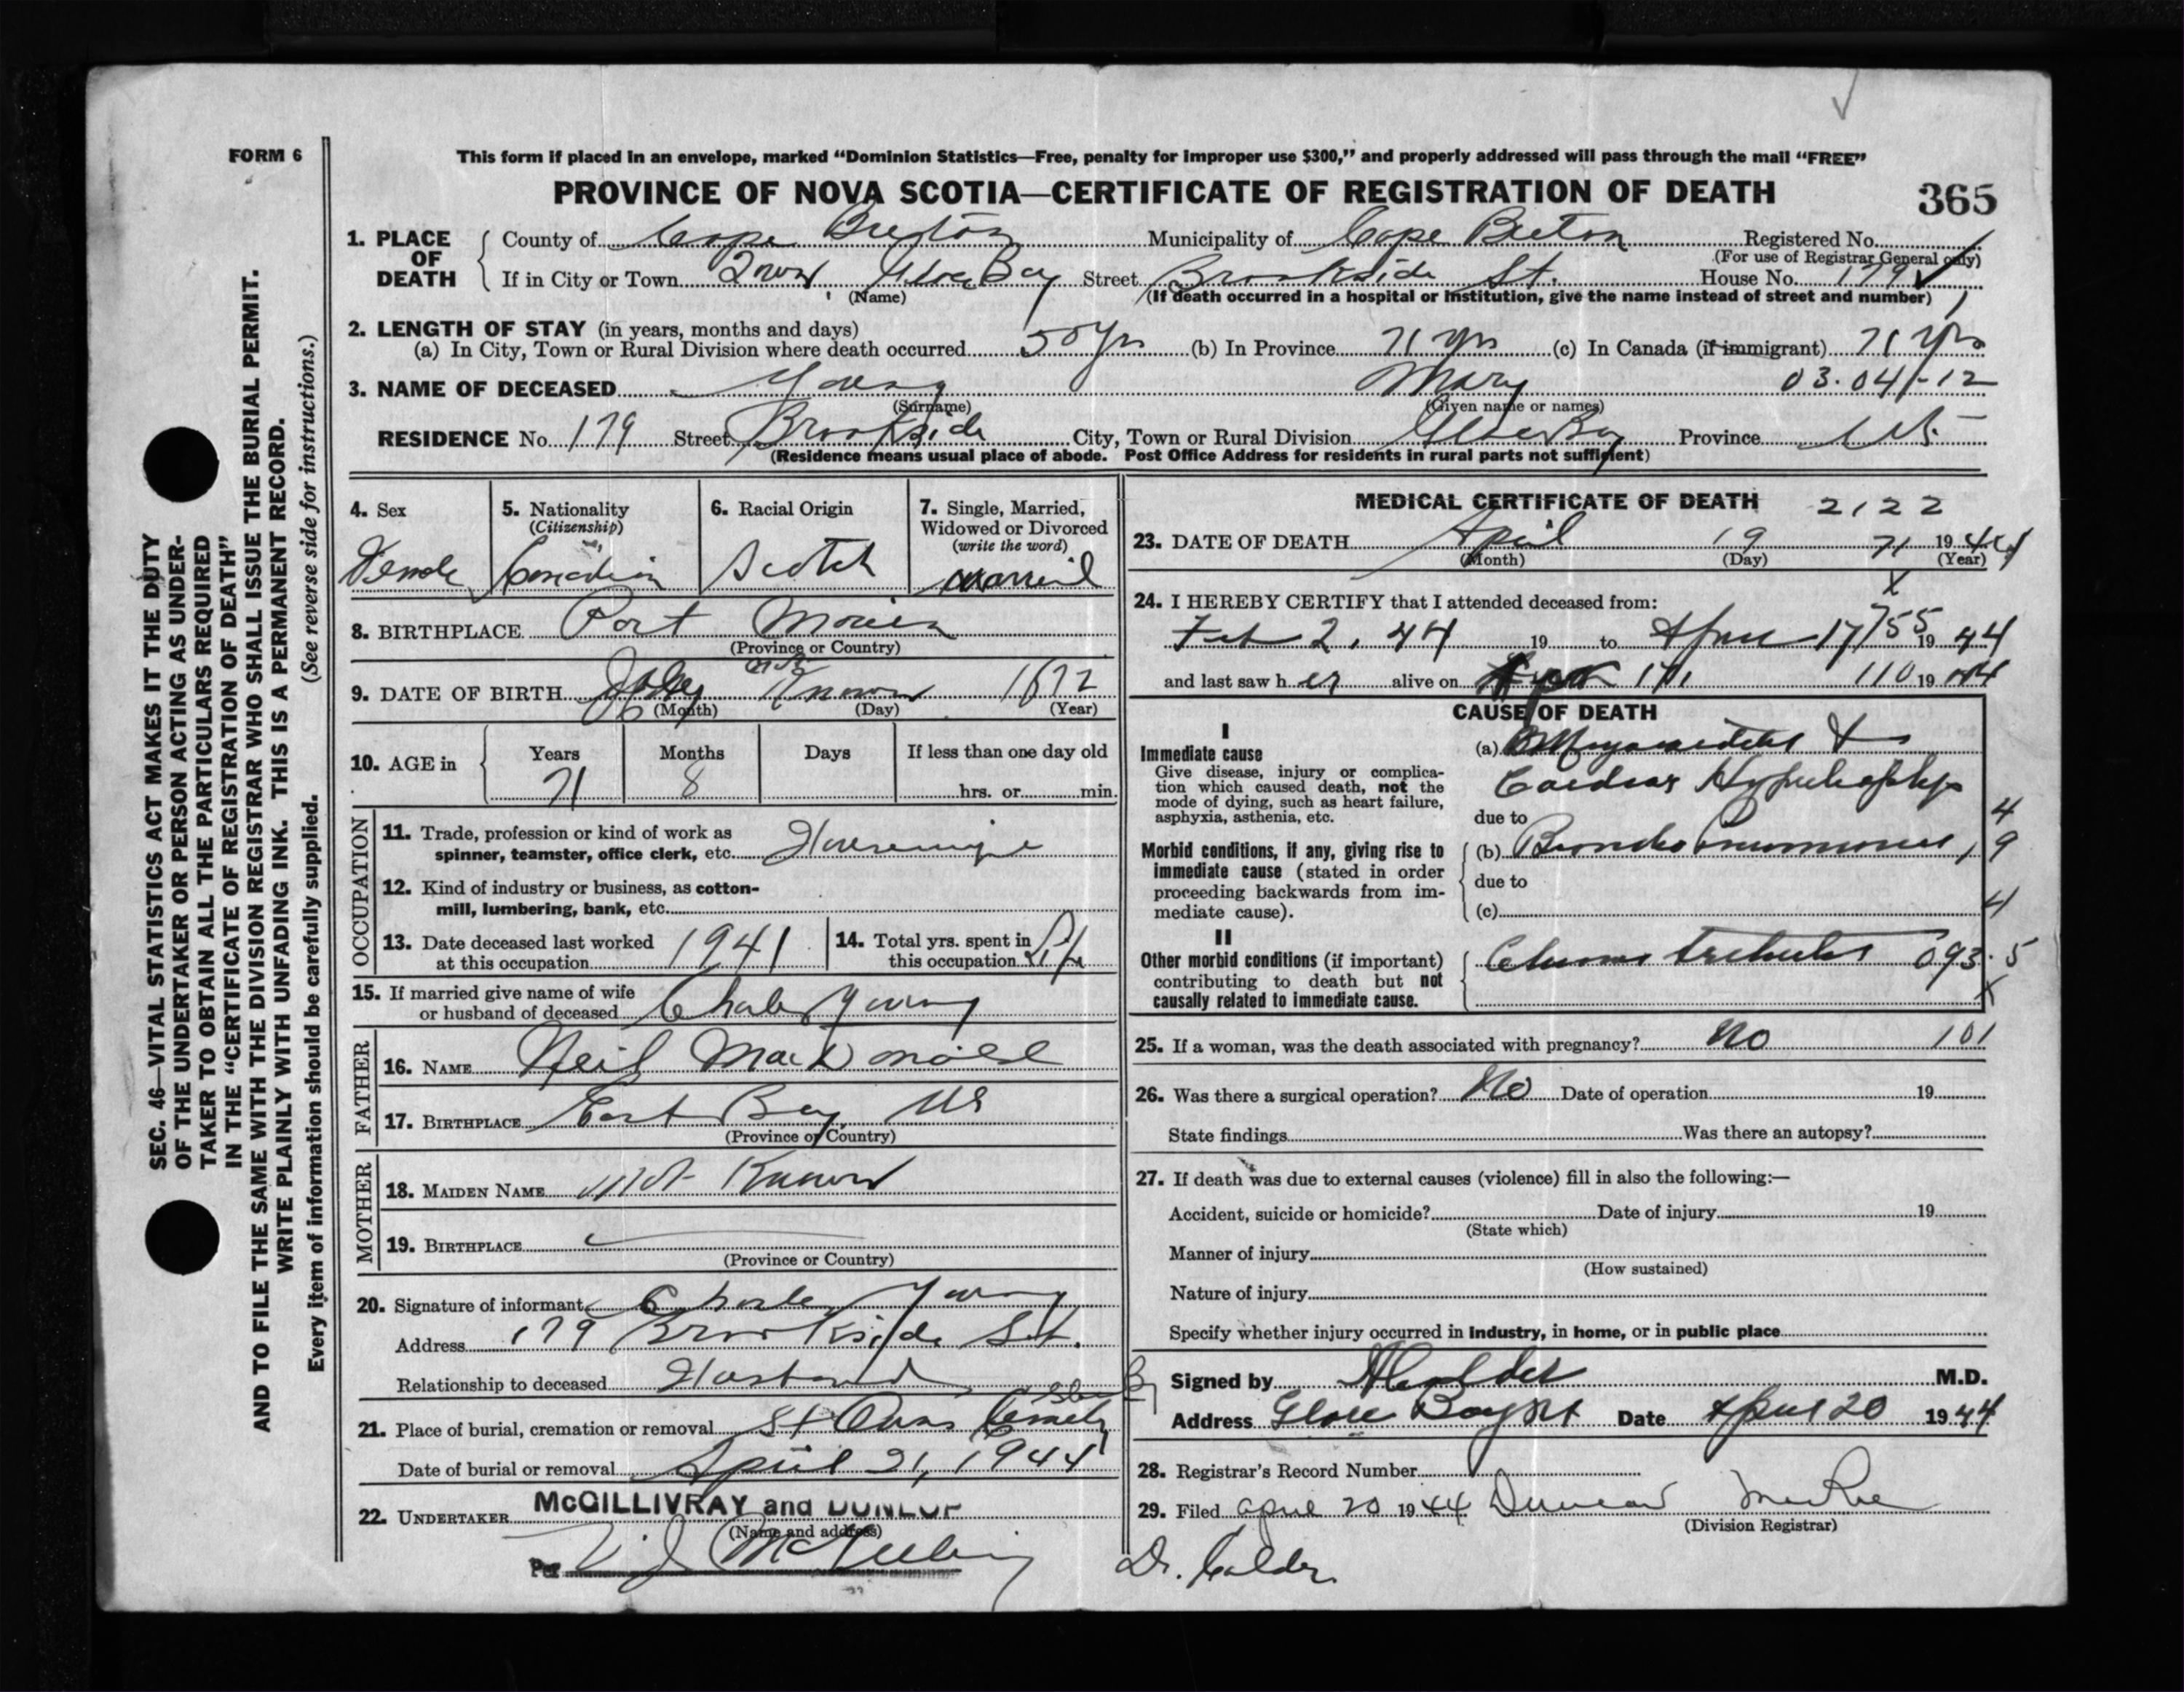 FORM 6
This form if placed in an envelope, marked “Dominion Statistics—Free, penalty for improper use $300,” and properly addressed will pass through the mail “FREE”
PROVINCE OF NOVA SCOTIA—CERTIFICATE OF REGISTRATION OF DEATH
365
1. PLACE OF DEATH
County of Cape Breton Municipality of Cape Breton Registered No.
(For use of Registrar General only)
If in City or Town Town Glace Bay Street Brookside St. House No. 179
(Name) (If death occurred in a hospital or institution, give the name instead of street and number)
2. LENGTH OF STAY (in years, months and days)
(a) In City, Town or Rural Division where death occurred 50 yrs (b) In Province 71 yrs (c) In Canada (if immigrant) 71 yrs
3. NAME OF DECEASED Young Mary 03.04-12
(Surname) (Given name or names)
RESIDENCE No. 179 Street Brookside City, Town or Rural Division Glace Bay Province N.S.
(Residence means usual place of abode. Post Office Address for residents in rural parts not sufficient)
4. Sex
Female
5. Nationality
(Citizenship)
Canadian
6. Racial Origin
Scotch
7. Single, Married,
Widowed or Divorced
(write the word)
Married
8. BIRTHPLACE Port Morien
(Province or Country)
9. DATE OF BIRTH July not Known 1872
(Month) (Day) (Year)
10. AGE in
Years Months Days If less than one day old
71 8 hrs. or min.
OCCUPATION
11. Trade, profession or kind of work as
spinner, teamster, office clerk, etc. Housewife
12. Kind of industry or business, as cotton-
mill, lumbering, bank, etc.
13. Date deceased last worked
at this occupation 1941
14. Total yrs. spent in
this occupation Life
15. If married give name of wife
or husband of deceased Charles Young
FATHER
16. NAME Neil MacDonald
17. BIRTHPLACE East Bay NS
(Province or Country)
MOTHER
18. MAIDEN NAME Not Known
19. BIRTHPLACE
(Province or Country)
20. Signature of informant Charles Young
Address 179 Brookside St.
Relationship to deceased Husband
21. Place of burial, cremation or removal St Anns Cemetery
Date of burial or removal April 21, 1944
22. UNDERTAKER McGILLIVRAY and DUNLOP
(Name and address)
Per
MEDICAL CERTIFICATE OF DEATH 2122
23. DATE OF DEATH April 19 71 1944
(Month) (Day) (Year)
24. I HEREBY CERTIFY that I attended deceased from:
Feb 2, 44 19 to April 17 755 19 44
and last saw her alive on 17, 110 19 44
CAUSE OF DEATH
I
Immediate cause
Give disease, injury or complica-
tion which caused death, not the
mode of dying, such as heart failure,
asphyxia, asthenia, etc.
(a) Myocarditis &
Cardiac Hypertrophy
due to 4
Morbid conditions, if any, giving rise to
immediate cause (stated in order
proceeding backwards from im-
mediate cause).
(b) Broncho Pneumonia, 9
due to
(c) 4
II
Other morbid conditions (if important)
contributing to death but not
causally related to immediate cause.
093.5
X
25. If a woman, was the death associated with pregnancy? No 101
26. Was there a surgical operation? No Date of operation 19
State findings Was there an autopsy?
27. If death was due to external causes (violence) fill in also the following:—
Accident, suicide or homicide? Date of injury 19
(State which)
Manner of injury
(How sustained)
Nature of injury
Specify whether injury occurred in industry, in home, or in public place
Signed by Calder M.D.
Address Glace Bay NS Date April 20 1944
28. Registrar's Record Number
29. Filed April 20 1944 Duncan McRae
(Division Registrar)
Dr. Calder
SEC. 46—VITAL STATISTICS ACT MAKES IT THE DUTY
OF THE UNDERTAKER OR PERSON ACTING AS UNDER-
TAKER TO OBTAIN ALL THE PARTICULARS REQUIRED
IN THE “CERTIFICATE OF REGISTRATION OF DEATH”
AND TO FILE THE SAME WITH THE DIVISION REGISTRAR WHO SHALL ISSUE THE BURIAL PERMIT.
WRITE PLAINLY WITH UNFADING INK. THIS IS A PERMANENT RECORD.
Every item of information should be carefully supplied. (See reverse side for instructions.)